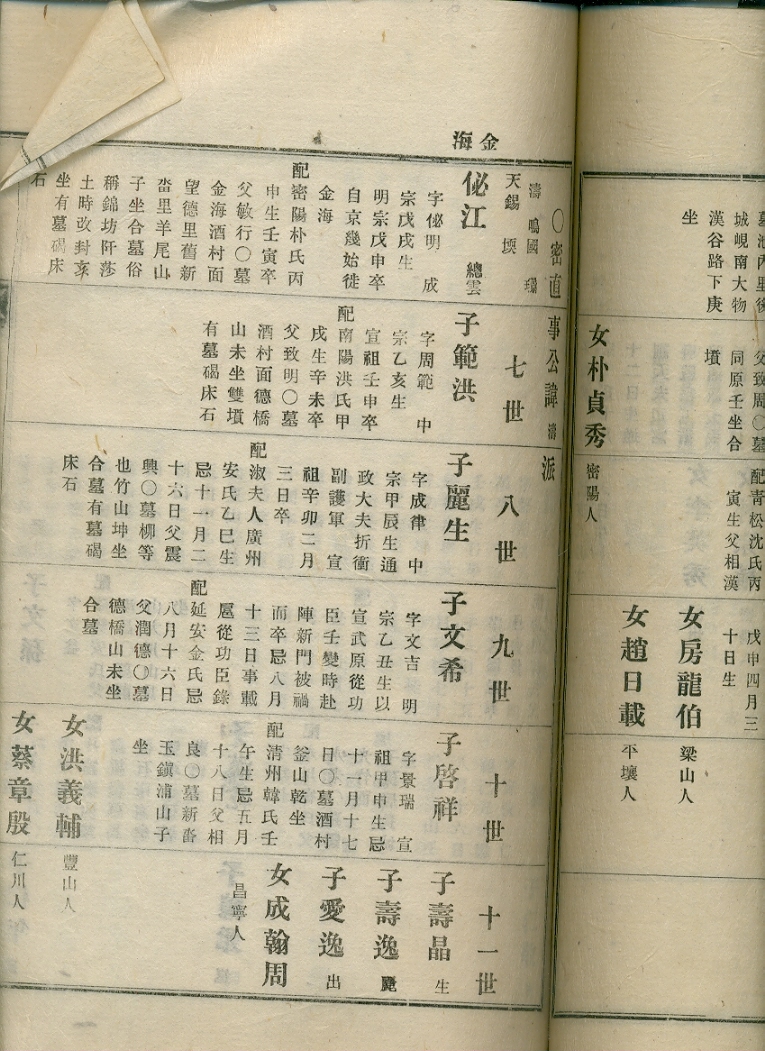 墓池內里後
城峴南大物
漢谷路下庚
坐
父致周〇墓
同原壬坐合
墳
女朴貞秀
密陽人
配靑松沈氏丙
寅生父相漢
戊申四月三
十日生
女房龍伯
梁山人
女趙日載
平壤人
金海
〇密直
事公諱濤
派
濤 鳴國
天錫 堧
七世
八世
九世
十世
十一世
佖江 總雲
字佖明 成
宗戊戌生
明宗戊申卒
自京幾始徙
金海
配密陽朴氏丙
申生壬寅卒
父敏行〇墓
金海酒村面
望德里舊新
畓里羊尾山
子坐合墓俗
稱錦坊阡莎
土時改封亥
坐有墓碣床
石
子範洪
字周範 中
宗乙亥生
宣祖壬申卒
配南陽洪氏甲
戌生辛未卒
父致明〇墓
酒村面德橋
山未坐雙墳
有墓碣床石
子麗生
字成律 中
宗甲辰生通
政大夫折衝
副護軍 宣
祖辛卯二月
三日卒
配淑夫人廣州
安氏乙巳生
忌十一月二
十六日父震
興〇墓柳等
也竹山坤坐
合墓有墓碣
床石
子文希
字文吉 明
宗乙丑生以
宣武原從功
臣壬變時赴
陣新門被禍
而卒忌八月
十三日事載
扈從功臣錄
配延安金氏忌
八月十六日
父潤德〇墓
德橋山未坐
合墓
子啓祥
字景瑞 宣
祖甲申生忌
十一月十七
日〇墓酒村
釜山乾坐
配清州韓氏壬
午生忌五月
十八日父相
良〇墓新畓
玉鎭浦山子
坐
女洪義輔
豐山人
女蔡章殷
仁川人
子壽晶 生
子壽逸 麗
子愛逸 出
女成翰周
昌寧人